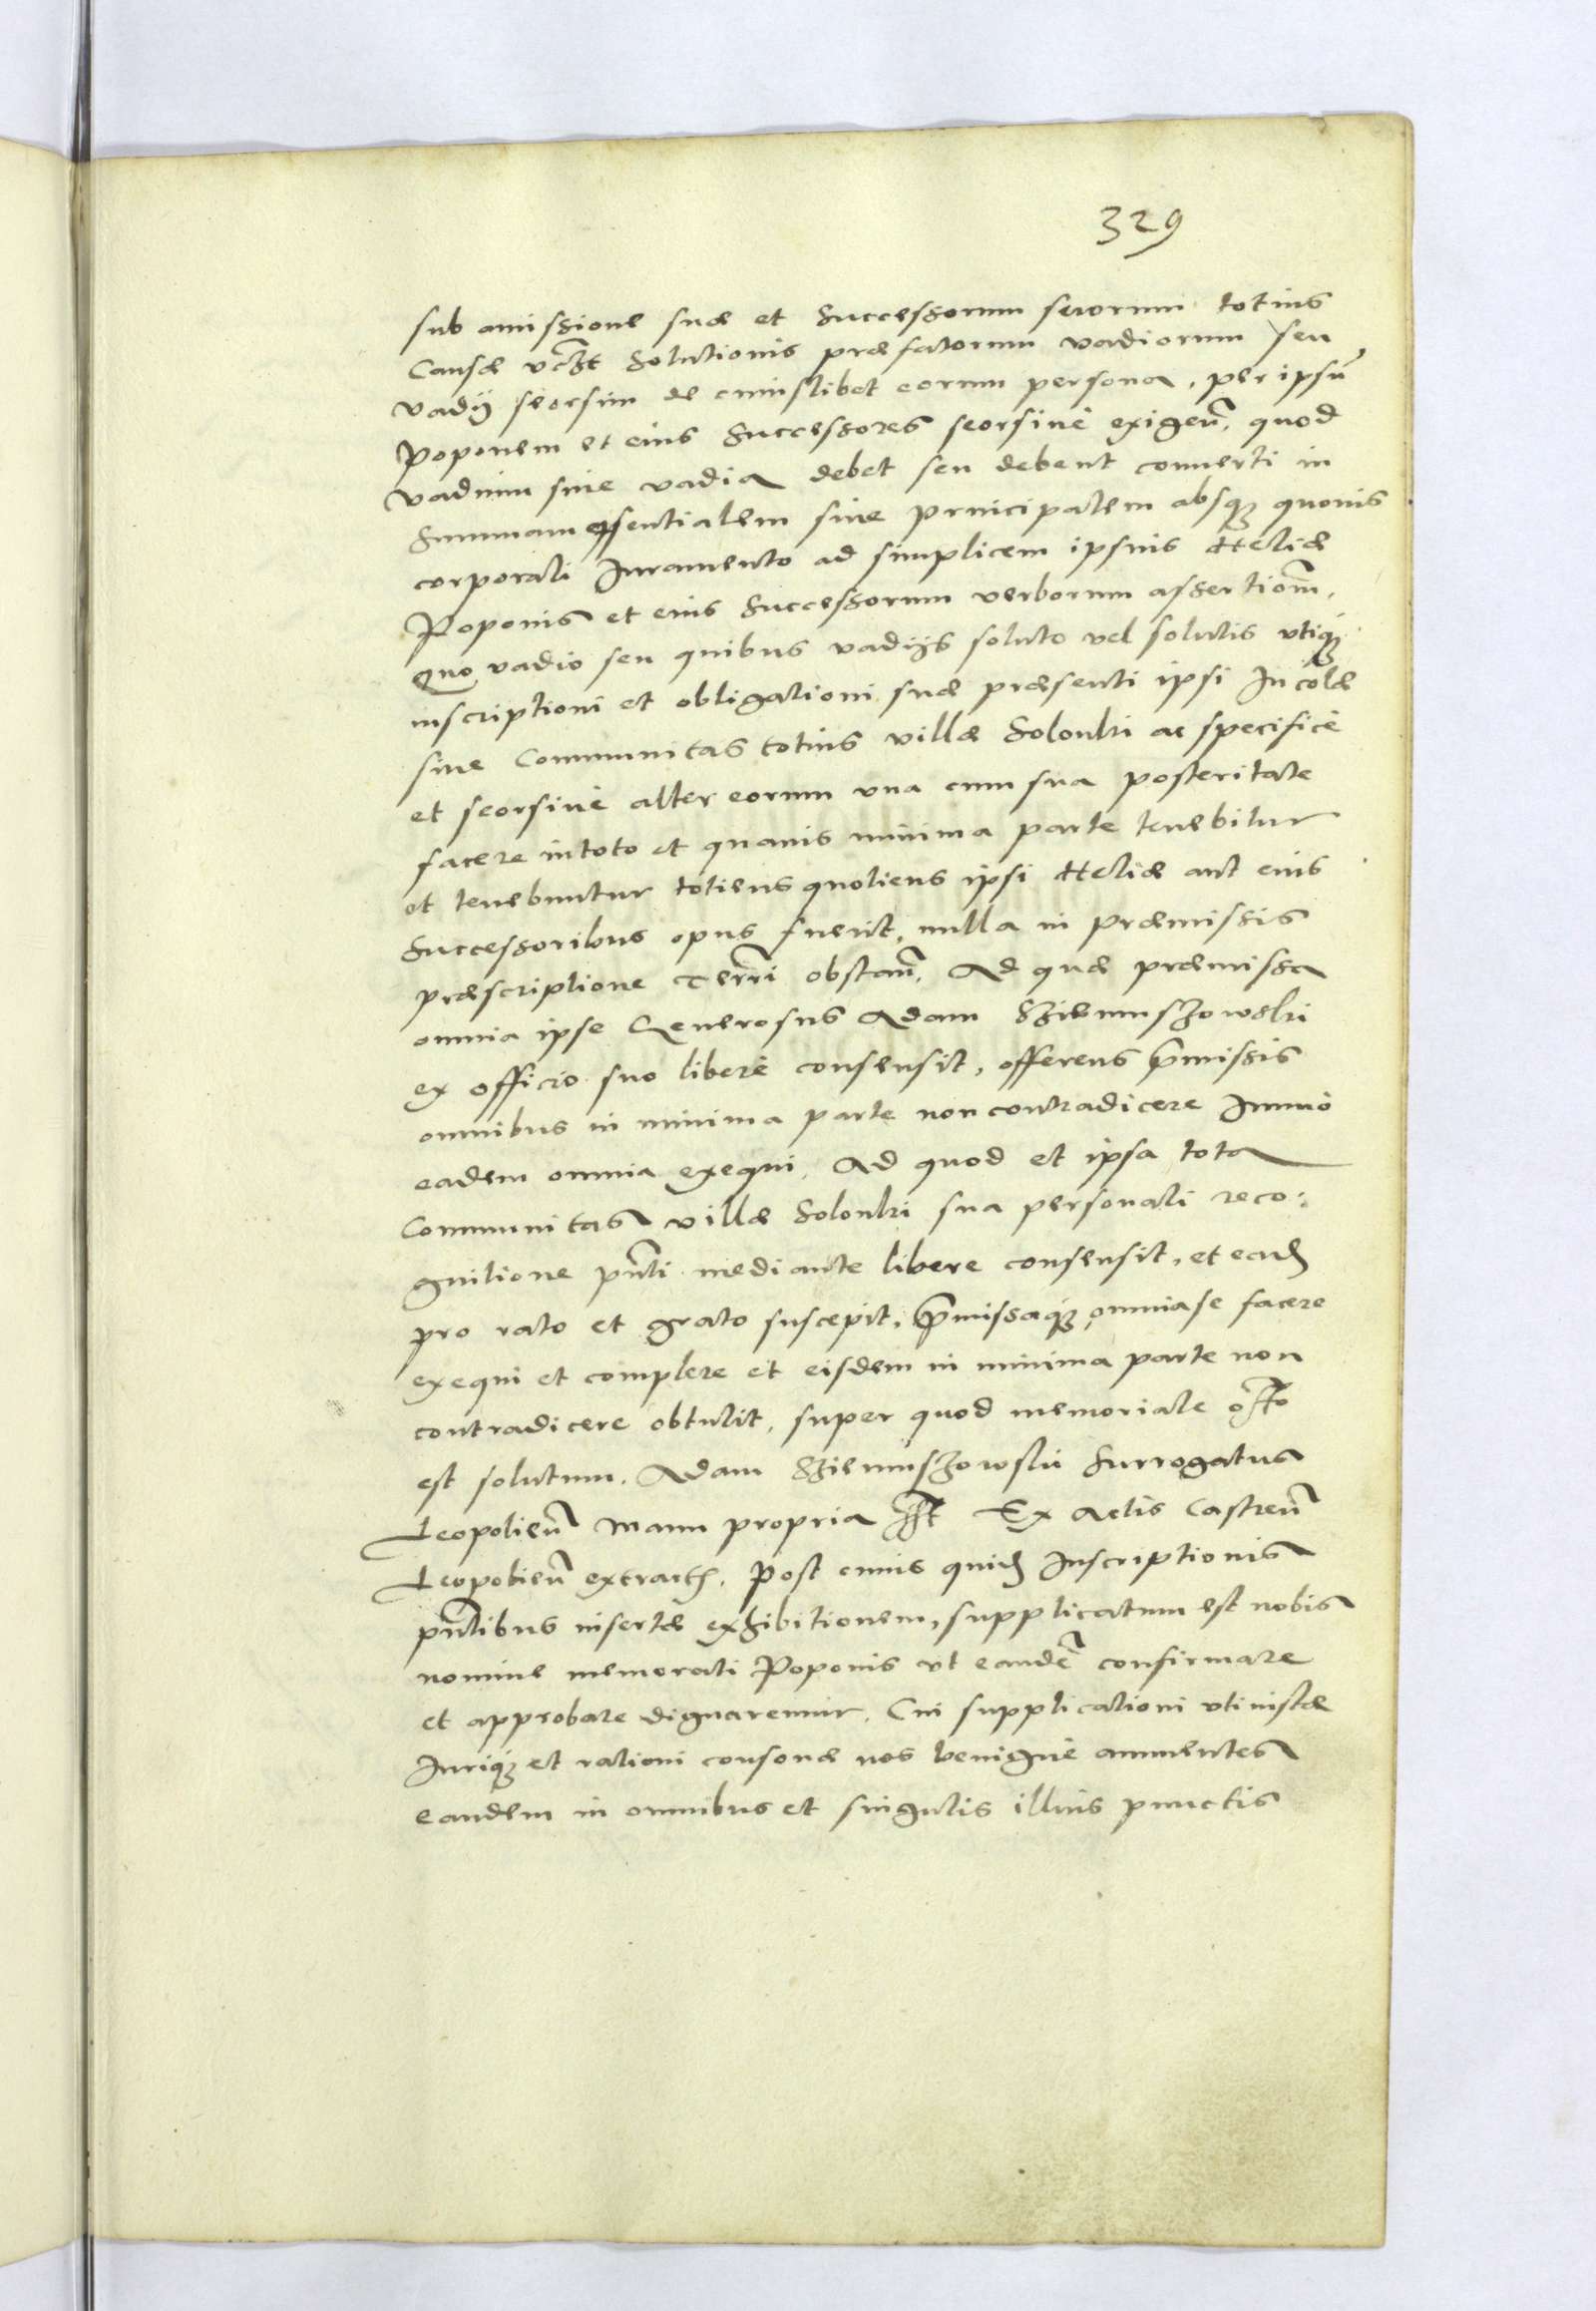 329
sub amissione suæ et Successorum suorum totius
Causæ vczt Solutionis præfatorum vadiorum seu
vadij seorsim de cuiuslibet eorum persona, per ipsũ
Poponem et eius Successores seorsiuè exigeñ, quod
vadium siue vadia debet seu debent conuerti in
Summam essentialem siue principalem absq3 quouis
corporali Iuramento ad simplicem ipsius Heliæ
Poponis et eius Successorum verborum assertioñ,
Quo vadio seu quibus vadijs soluto vel solutis vtiq3
inscriptioni et obligationi suæ præsenti ipsi Incolæ
siue Communitas totius villæ Solonki ac specificè
et seorsiuè alter eorum vna cum sua posteritate
facere in toto et quauis minima parte tenebitur
et tenebuntur totiens quotiens ipsi Heliæ aut eius
Successoribus opus fuerit, nulla in præmissis
præscriptione Terrȓi obstañ. Ad quæ præmissa
omnia ipse Generosus Adam Sziemuszowski
ex officio suo liberè consensit, offerens p̃missis
omnibus in minima parte non contradicere Immò
eadem omnia exequi. Ad quod et ipsa tota
Communitas villæ Solonki sua personali reco:
gnitione pñti mediante libere consensit, et eadẽ
pro rato et grato suscepit, p̃missaq3 omnia se facere
exequi et complere et eisdem in minima parte non
contradicere obtulit, super quod memoriale
est solutum. Adam Sziemuszowski Surrogatus
Leopolieñ manu propria sst Ex Actis Castreñ
Leopolieñ extract. Post cuius quidẽ Inscriptionis
pñtibus insertæ exhibitionem, supplicatum est nobis
nomine memorati Poponis vt eandẽ confirmare
et approbare dignaremur. Cui supplicationi vti iustæ
Iuriq3 et rationi consonæ nos benignè annuentes
eandem in omnibus et singulis illius punctis